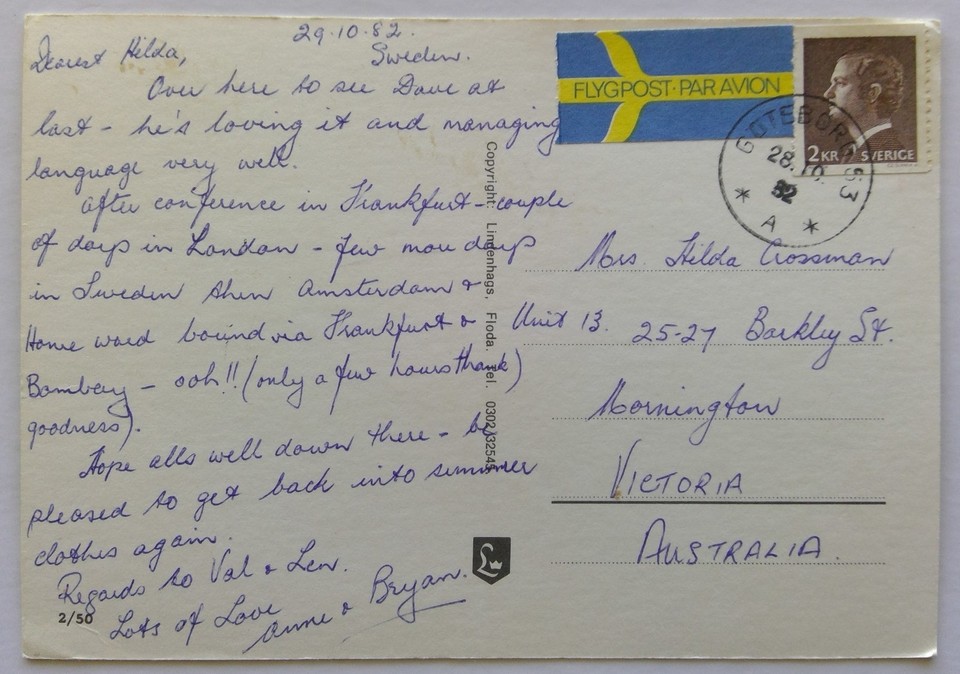 29.10.82.
Sweden.
Dearest Hilda,
Over here to see Dave at
last - he's loving it and managing
language very well.
After conference in Frankfurt - couple
of days in London - few more days
in Sweden then Amsterdam &
Home ward bound via Frankfurt &
Bombay - ooh!! (only a few hours thank
goodness).
Hope alls well down there - be
pleased to get back into summer
clothes again.
Regards to Val & Len.
Lots of Love
Anne & Bryan.
2/50
Copyright: Lindenhags, Floda. Tel. 0302/32545
L
FLYGPOST·PAR AVION
2KR SVERIGE
GÖTEBORG
28.10.
82
* A *
Mrs. Hilda Crossman
Unit 13. 25-27 Barkley St.
Mornington
VICTORIA
AUSTRALIA.